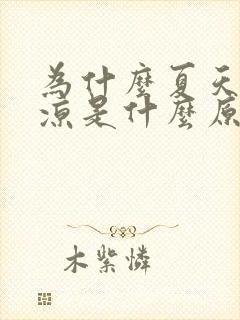 為什麼夏天
涼是什麼原
木紫憐